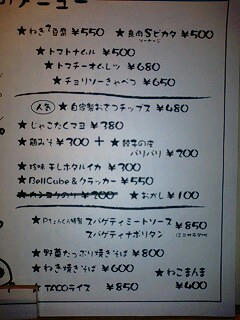 メニュー
★ねぎマ豆腐 ¥550 ★魚肉Sピカタ ¥500
ソーセージ
★トマトナムル ¥500
★トマチーオムレツ ¥680
★チョリソーきゃべつ ¥650
人気 ★自家製おさつチップス ¥480
★じゃこたくマヨ ¥380
★ ¥300 + ★餃子の皮
パリパリ ¥200
★珍味 干しホタルイカ ¥300
★BellCube&クラッカー ¥550
¥200 ★おかし ¥100
★ 特製 スパゲティミートソース ¥850
スパゲティナポリタン
★野菜たっぷり焼きそば ¥800
★ねぎ焼きそば ¥600 ★ねこまんま
★TACOライス ¥850 ¥400